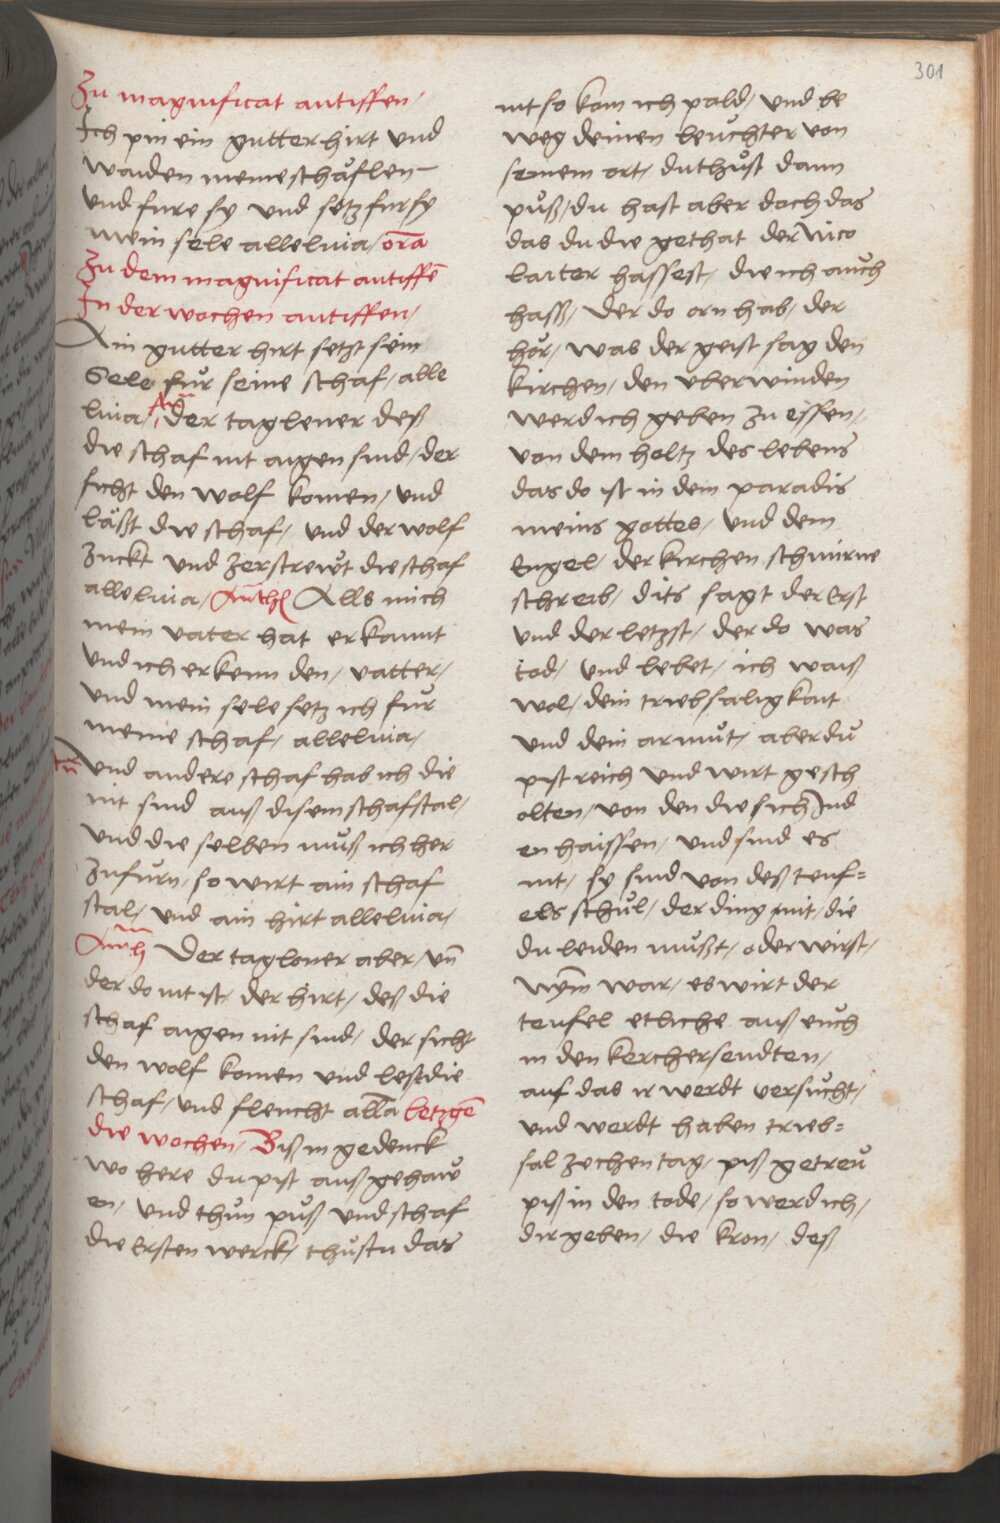 301
Zu magnificat antiffen /
Ich pin ein gutter hirt und
waiden meine schäflen
und fure sy und setz fur sy
mein sele alleluia / ora
Zu dem magnificat antiffē
In der wochen antiffen /
Ain gutter hirt setzt sein
Sele für seine schaf / alle
luia / An̄ der taglener deß
die schaf nit aigen sind / der
sicht den wolf komen / und
läßt die schaf / und der wolf
zuckt und zerstrewt die schaf
alleluia / Anth Alls mich
mein vater hat erkannt
und ich erkenn den / vatter /
und mein sele setz ich fur
meine schaf / alleluia /
An̄ und andere schaf hab ich die
nit sind auß disem schafstal /
und die selben muß ich her
zufurn / so wirt ain schaf
stal / und ain hirt alleluia /
Anth Der tagloner aber / un̄
der do nit ist / der hirt / deß die
schaf aigen nit sind / der sicht
den wolf komen und lest die
schaf / und fleucht alla letzgē
die wochen / Biß ingedenck
wo here du pist außgehaw
en / und thun puß und schaf
die ersten werck / thustu das
nit so kom ich pald / und be
weg deinen leuchter von
seinem ort / du thust dann
puß / du hast aber doch das
das du die gethat der nico
laiter hassest / die ich auch
hass / Der do orn hab / der
hör / was der geist sag den
kirchen / den uberwinden
werd ich geben zu essen /
von dem holtz des lebens
das do ist in dem paradis
meins gottes / und dem
Engel / der kirchen schmirne
schreib / dits sagt der erst
und der letzst / der do was
tod / und lebet / ich waiß
wol / dein triebsaligkait
und dein armut / aber du
pist reich und wirt gesch
olten / von den die sich Jud
en haissen / und sind es
nit / sy sind von deß teuf=
els schul / der ding nit / die
du leiden mußt / oder wirst /
Nym war / es wirt der
teufel etliche auß euch
in den kercher sendten /
auf das ir werdt versucht /
und werdt haben trieb=
sal zechen tag / piß getreu
piß in den tode / so werd ich /
dir geben / die kron / deß